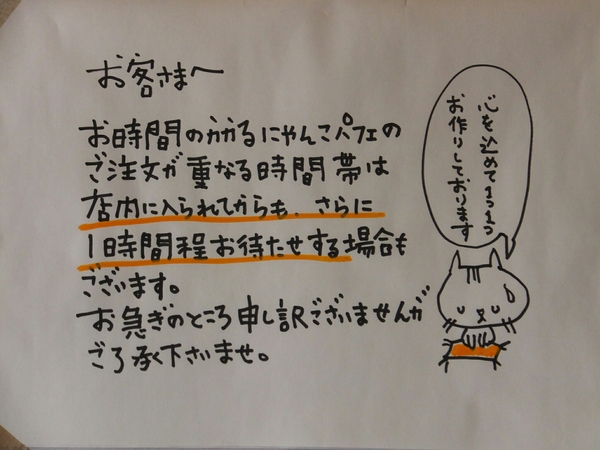 お客さまへ
お時間のかかるにゃんこパフェの
ご注文が重なる時間帯は
店内に入られてからも、さらに
1時間程お待たせする場合も
ございます。
お急ぎのところ申し訳ございませんが
ごろ承下さいませ。
心を込めて
お作りしております